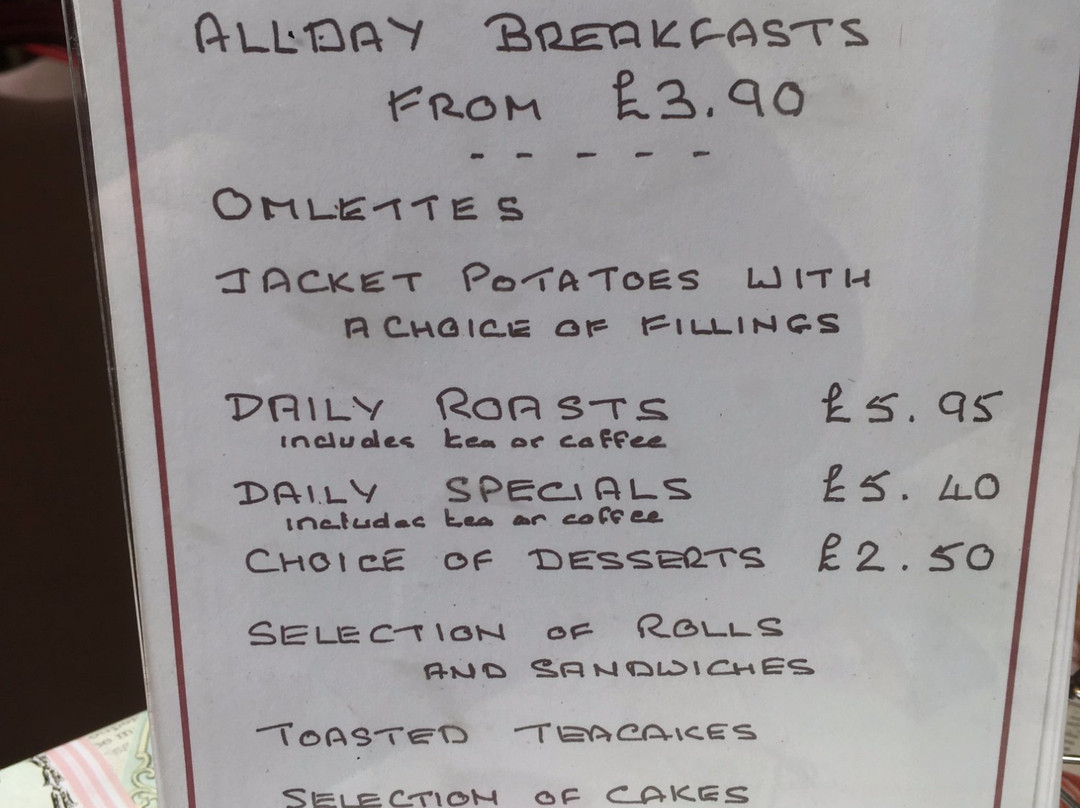 ALL DAY BREAKFASTS
FROM £3.90
- - - - -
OMLETTES
JACKET POTATOES WITH
A CHOICE OF FILLINGS
DAILY ROASTS £5.95
includes tea or coffee
DAILY SPECIALS £5.40
includes tea or coffee
CHOICE OF DESSERTS £2.50
SELECTION OF ROLLS
AND SANDWICHES
TOASTED TEACAKES
SELECTION OF CAKES